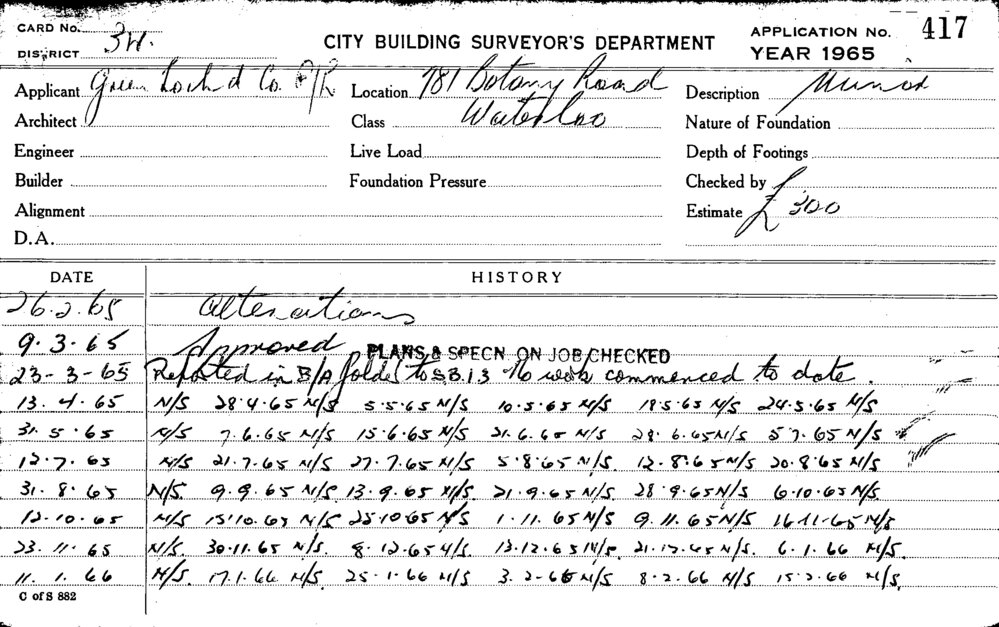 CARD No. CITY BUILDING SURVEYOR'S DEPARTMENT APPLICATION No. 417
DISTRICT 3W. YEAR 1965
Applicant Green & Co. P/L Location 781 Botany Road Description Minor
Architect Class Waterloo Nature of Foundation
Engineer Live Load Depth of Footings
Builder Foundation Pressure Checked by
Alignment Estimate £ 300
D.A.
DATE HISTORY
26.2.65 Alterations
9.3.65 Approved PLANS & SPECN. ON JOB/CHECKED
23-3-65 Reported in B/A folder to S.B.13 No work commenced to date.
13.4.65 N/S 28.4.65 N/S 5.5.65 N/S 10.5.65 N/S 18.5.65 N/S 24.5.65 N/S
31.5.65 N/S 7.6.65 N/S 15.6.65 N/S 21.6.65 N/S 28.6.65 N/S 5.7.65 N/S
12.7.65 N/S 21.7.65 N/S 27.7.65 N/S 5.8.65 N/S 12.8.65 N/S 20.8.65 N/S
31.8.65 N/S. 9.9.65 N/S 13.9.65 N/S. 21.9.65 N/S 28.9.65 N/S 6.10.65 N/S
12.10.65 N/S 15.10.65 N/S 25.10.65 N/S 1.11.65 N/S 9.11.65 N/S 16.11.65 N/S
23.11.65 N/S. 30.11.65 N/S. 8.12.65 N/S. 13.12.65 N/S. 21.12.65 N/S. 6.1.66 N/S.
11.1.66 N/S. 17.1.66 N/S. 25.1.66 N/S 3.2.66 N/S 8.2.66 N/S 15.2.66 N/S.
C of S 882